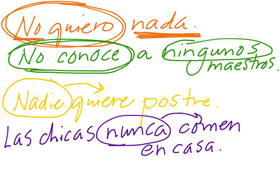 No quiero nada.
No conoce a ningunos
maestros.
Nadie quiere postre.
Las chicas nunca comen
en casa.